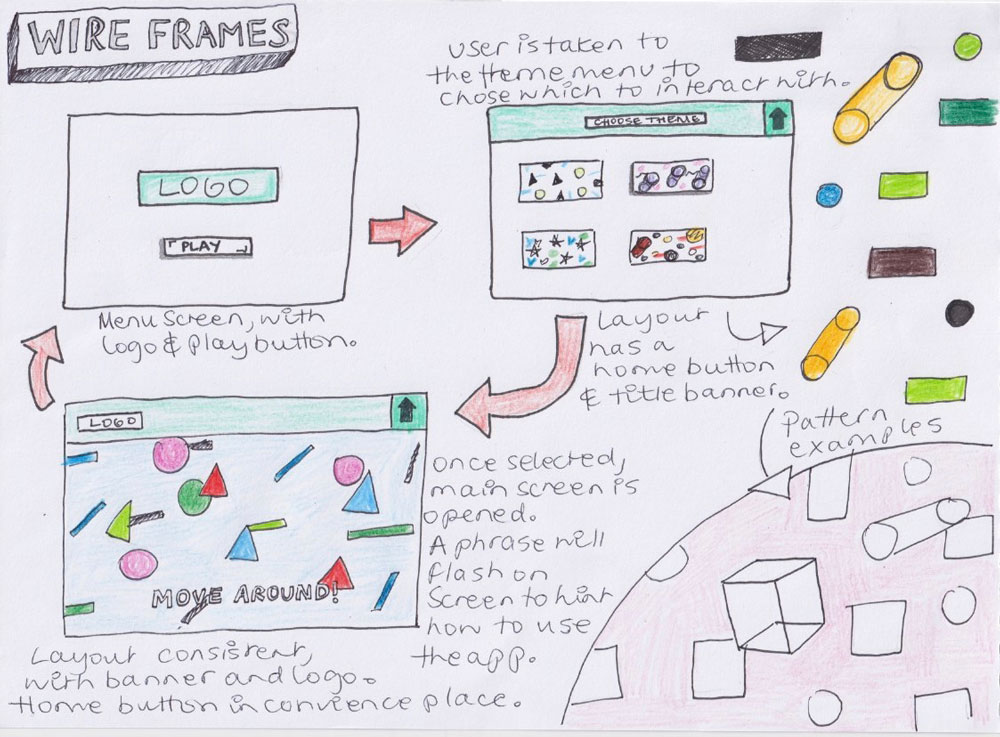 WIRE FRAMES
user is taken to
the theme menu to
chose which to interact with.
LOGO
PLAY
CHOOSE THEME
Menu screen, with
logo & play button.
Layout
has a
home button
& title banner.
Pattern
examples
LOGO
MOVE AROUND!
once selected,
main screen is
opened.
A phrase will
flash on
screen to hint
how to use
the app.
Layout consistent,
with banner and logo.
Home button in convience place.